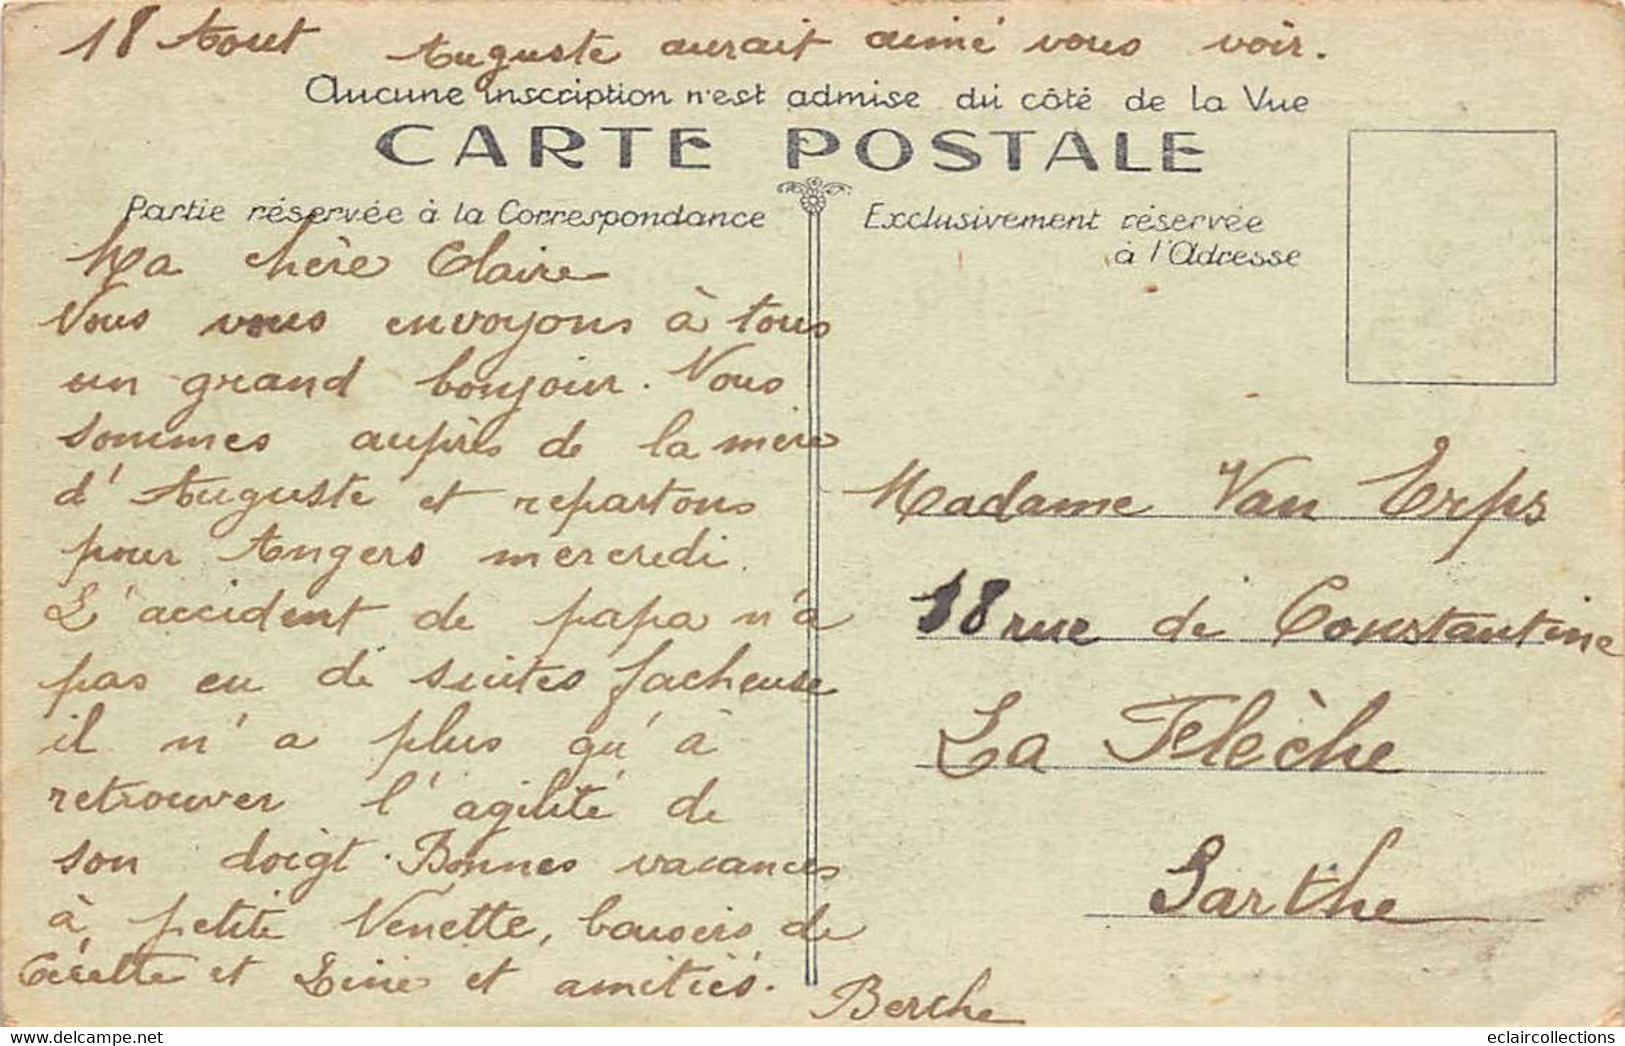 18 Aout Auguste aurait aimé vous voir.
Aucune inscription n'est admise du côté de la Vue
CARTE POSTALE
Partie réservée à la Correspondance
Exclusivement réservée
à l'Adresse
Ma chère Claire
Nous vous envoyons à tous
un grand bonjour. Nous
sommes auprès de la mère
d'Auguste et repartons
pour Angers mercredi.
L'accident de papa n'a
pas eu de suites facheuse
il n'a plus qu'à
retrouver l'agilité de
son doigt. Bonnes vacances
à petite Nenette, baisers de
et Line et amitiés.
Berthe
Madame Van Erps
18 rue de Constantine
La Flèche
Sarthe
eclaircollections